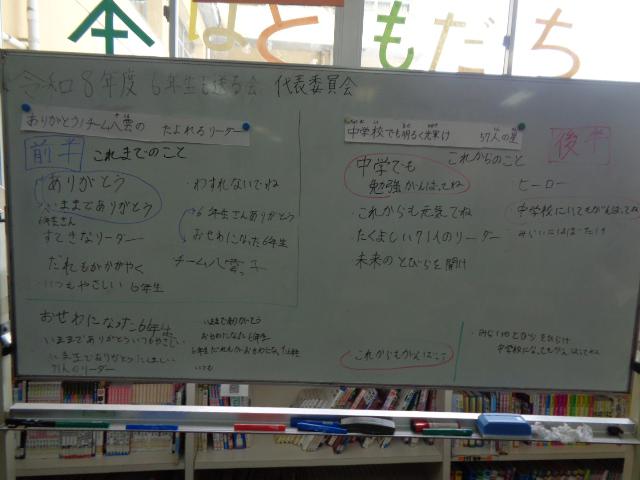 本はともだち
令和8年度 6年生を送る会 代表委員会
ありがとう!チーム八雲の たよれるリーダー
前半 これまでのこと
ありがとう
いままでありがとう
6年生さん
すてきなリーダー
だれもがかがやく
・いつもやさしい 6年生
・わすれないでね
・6年生さんありがとう
・おせわになった6年生
チーム八雲っ子
おせわになった6年生
・いままでありがとういつもやさしい
71人のリーダー
・いままでありがとう
おせわになった6年生
いつも
中学校でも明るく光輝け 57人の星
これからのこと
後半
中学でも
勉強がんばってね
・これからも元気でね
・たくましい71人のリーダー
・未来のとびらを開け
これからもがんばって
・ヒーロー
・中学校にいてもがんばってね
・みらいにはばたけ
・みらいのとびらをひらけ
中学校になってもがんばってね